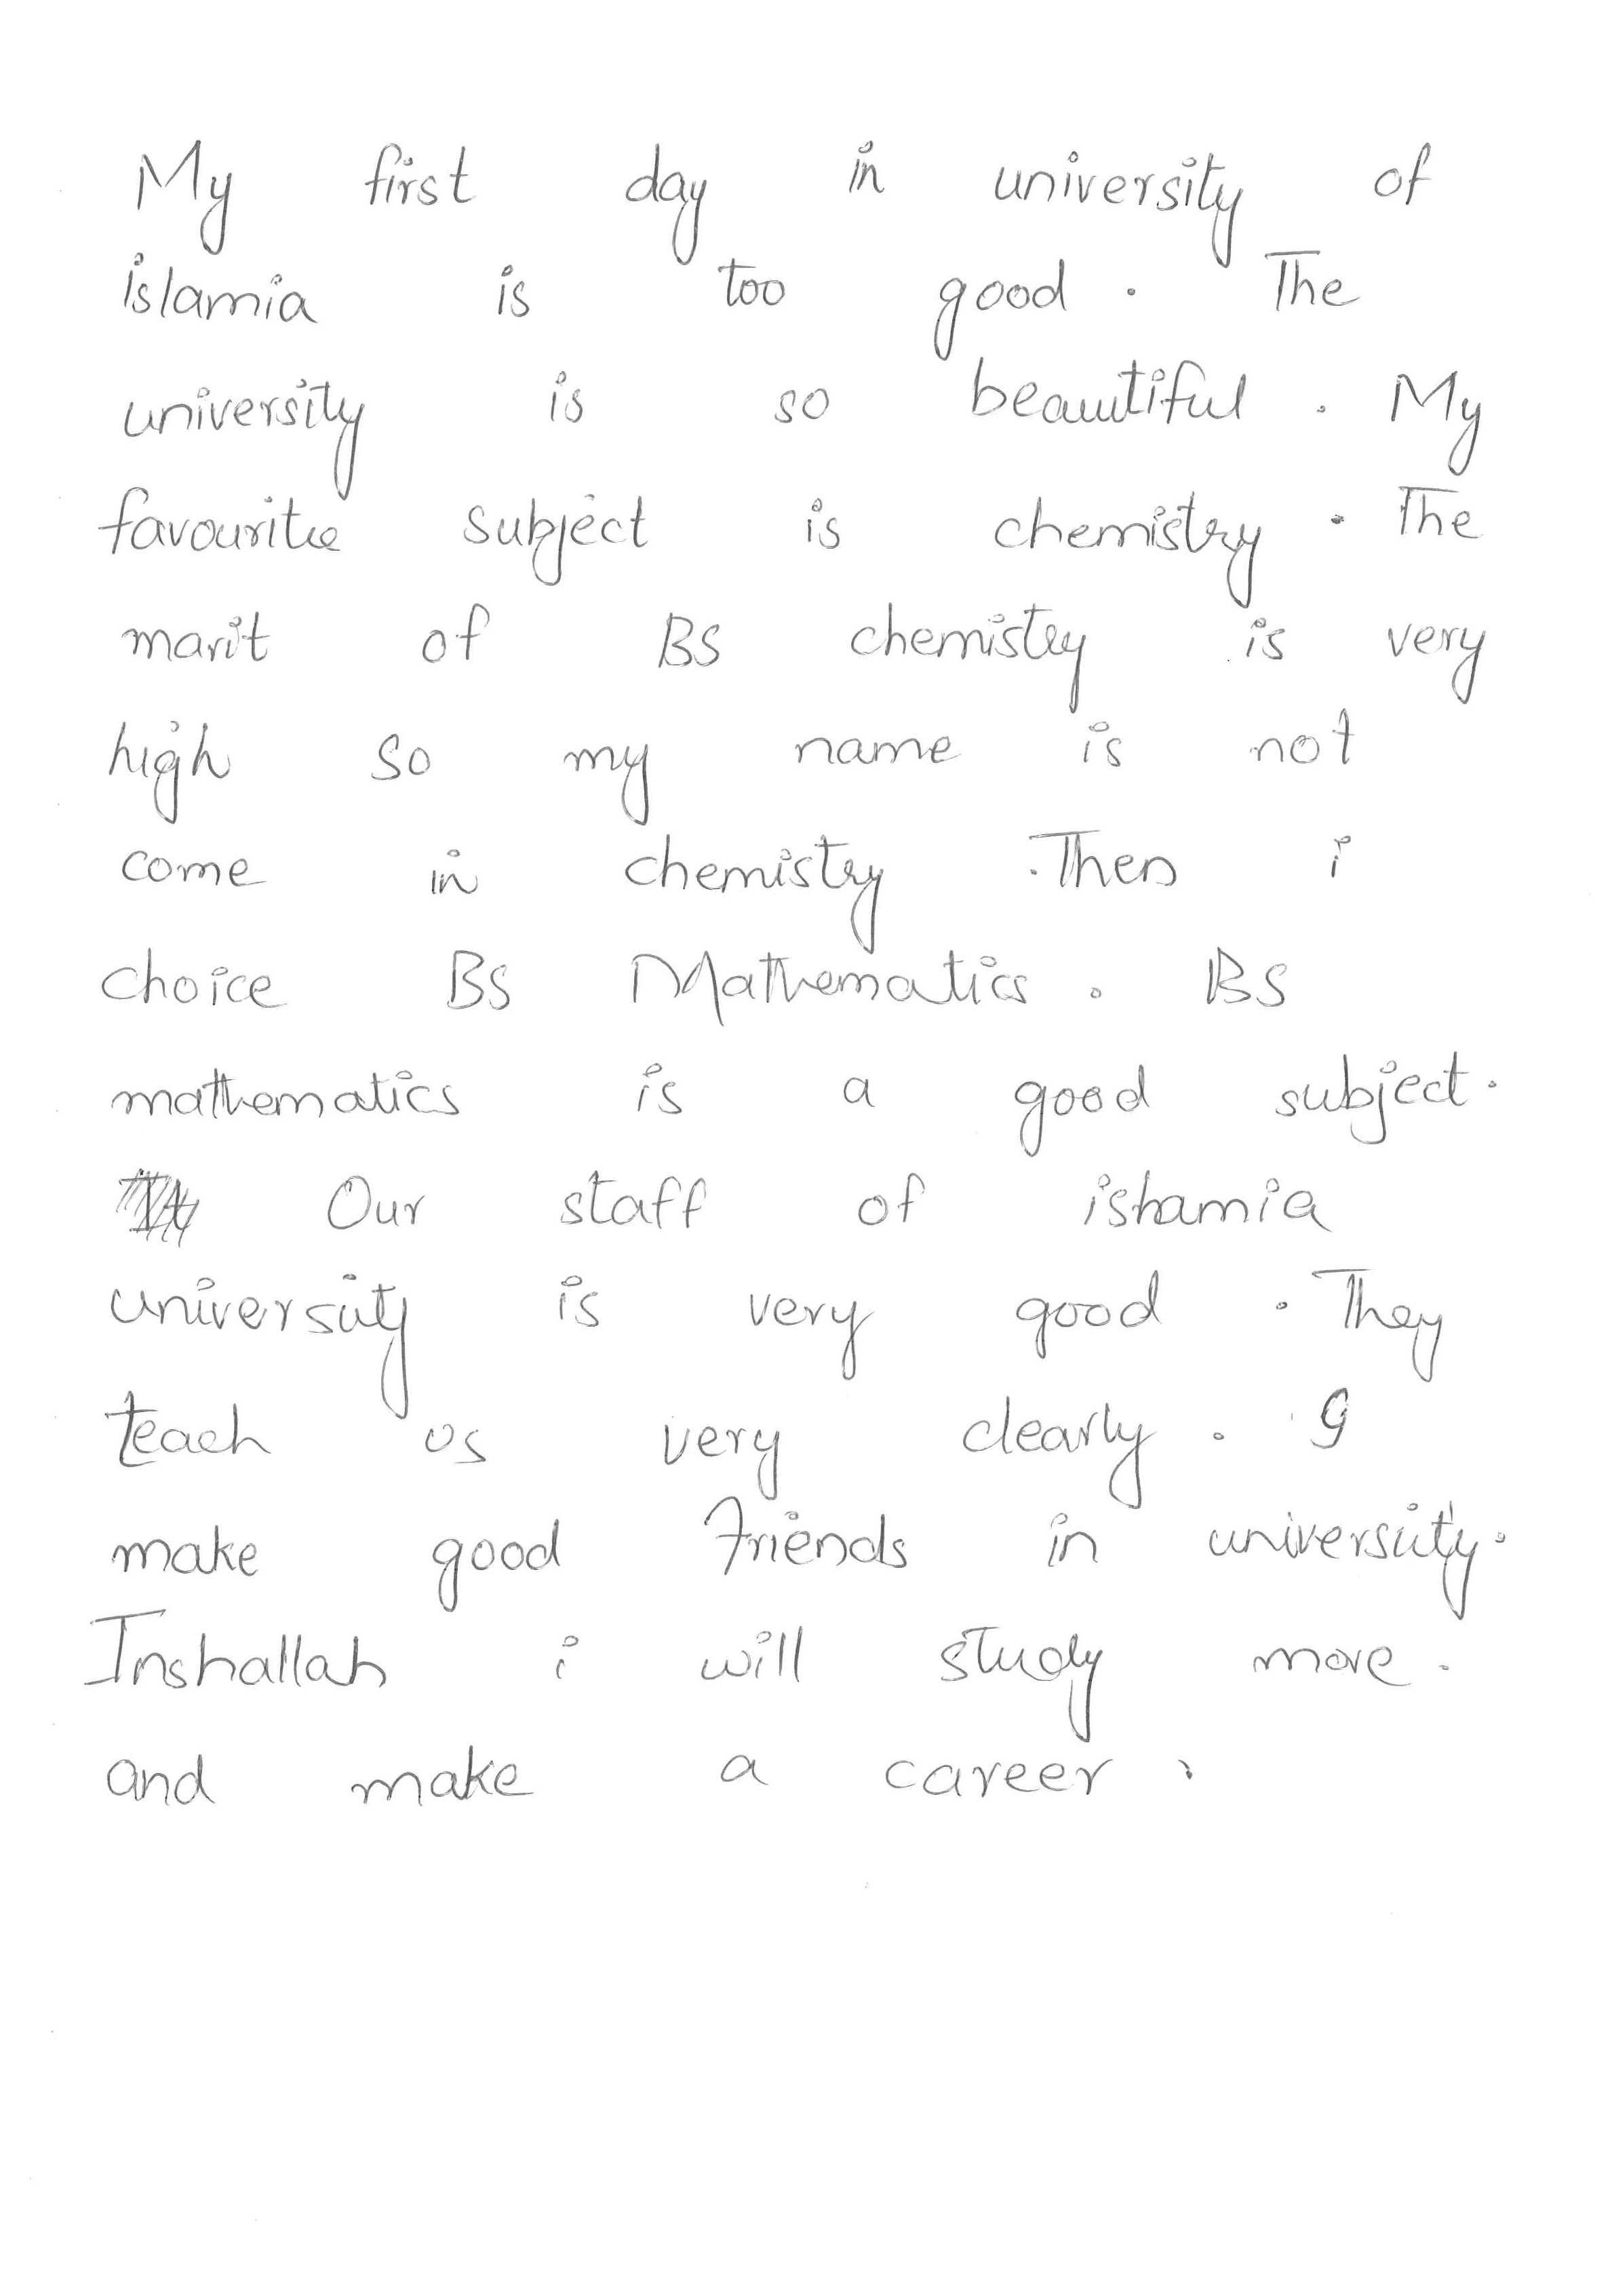 My first day in university of
islamia is too good. The
university is so beautiful. My
favourite subject is chemistry. The
marit of BS chemistry is very
high so my name is not
come in chemistry. Then i
choice BS Mathematics. BS
mathematics is a good subject.
Our staff of islamia
university is very good. They
teach us very clearly. I
make good friends in university.
Inshallah i will study more.
and make a career.